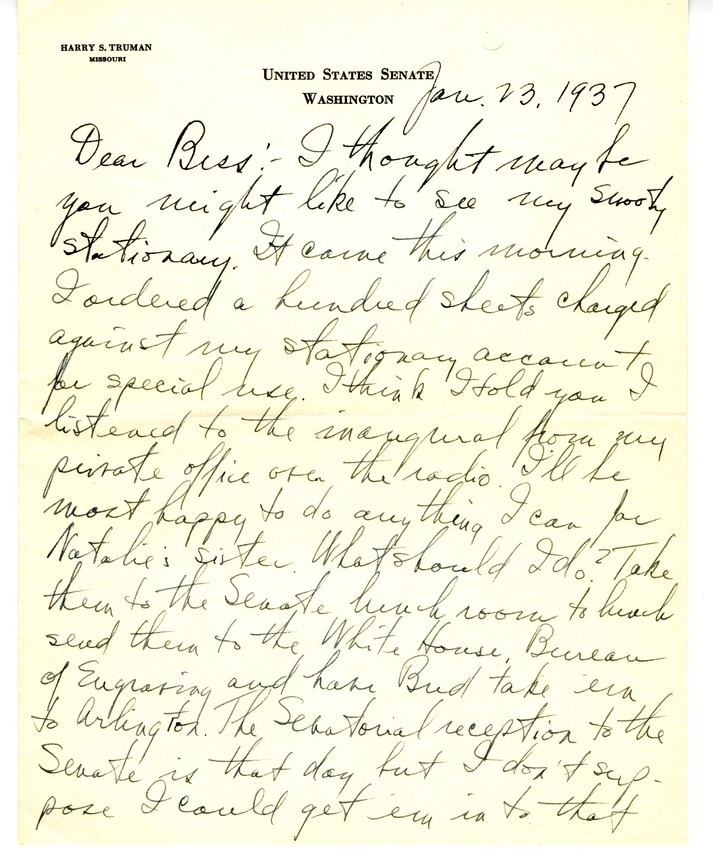 HARRY S. TRUMAN
MISSOURI
UNITED STATES SENATE
WASHINGTON
Jan. 23, 1937
Dear Bess:- I thought maybe
you might like to see my snooty
stationary. It came this morning.
I ordered a hundred sheets charged
against my stationary account
for special use. I think I told you I
listened to the inaugural from my
private office over the radio. I'll be
most happy to do anything I can for
Natalie's sister. What should I do? Take
them to the Senate lunch room to lunch
send them to the White House, Bureau
of Engraving and have Bud take 'em
to Arlington. The Senatorial reception to the
Senate is that day but I don't sup-
pose I could get 'em in to that